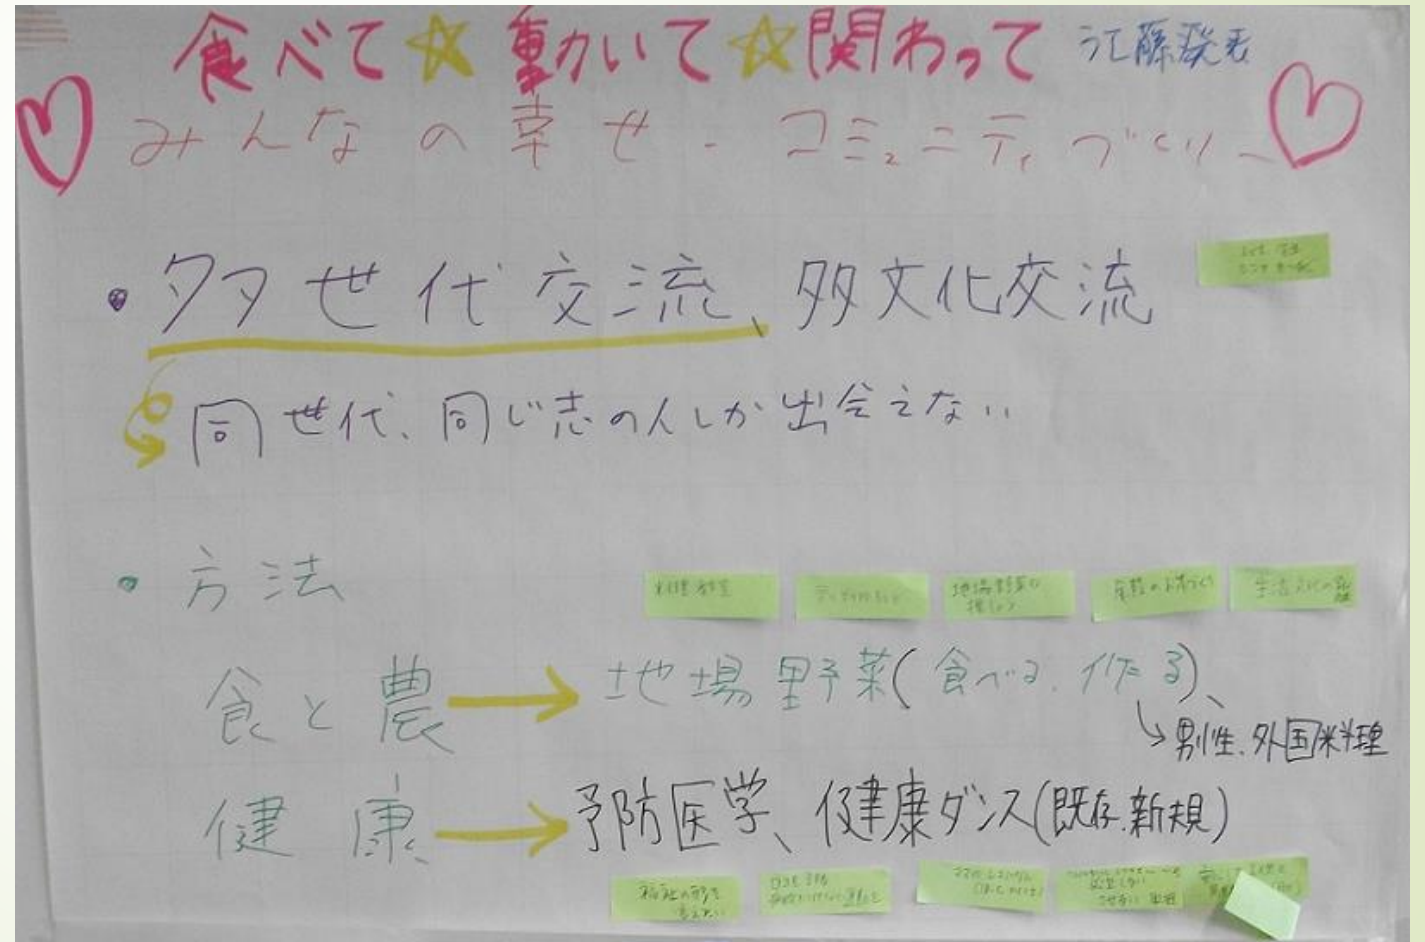 食べて☆動いて☆関わって 江藤発表
みんなの幸せ-コミュニティづくり-
・多世代交流、多文化交流
同世代、同じ志の人しか出会えない
・方法
料理教室
地場野菜の
食と農→地場野菜(食べる、作る)、
↳男性、外国料理
健康→予防医学、健康ダンス(既存、新規)
福祉の形を
変えたい